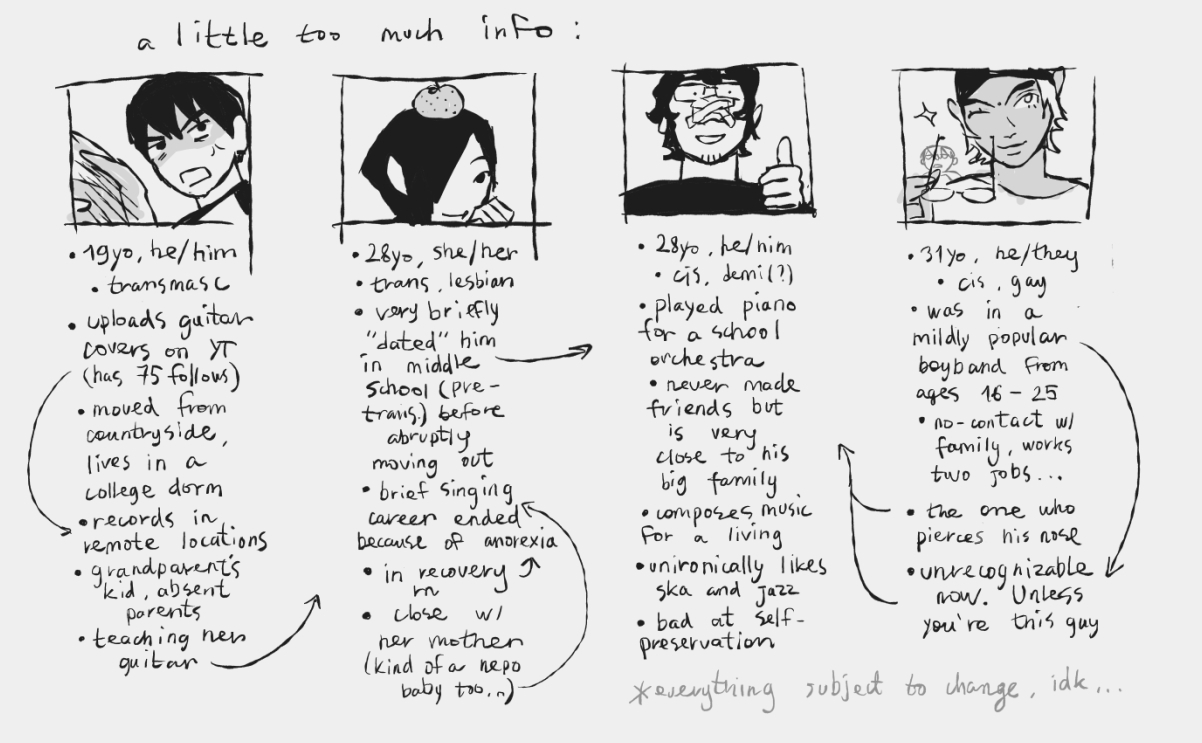 a little too much info:
• 19yo, he/him
• transmasc
• uploads guitar
covers on YT
(has 75 follows)
• moved from
countryside,
lives in a
college dorm
• records in
remote locations
• grandparent's
kid, absent
parents
• teaching her
guitar
• 28yo, she/her
• trans, lesbian
• very briefly
"dated" him
in middle
school (pre-
trans.) before
abruptly
moving out
• brief singing
career ended
because of anorexia
• in recovery
rn
• close w/
her mother
(kind of a nepo
baby too...)
• 28yo, he/him
• cis, demi(?)
• played piano
for a school
orchestra
• never made
friends but
is very
close to his
big family
• composes music
for a living
• unironically likes
ska and jazz
• bad at self-
preservation
• 31yo, he/they
• cis, gay
• was in a
mildly popular
boyband from
ages 16-25
• no-contact w/
family, works
two jobs...
• the one who
pierces his nose
• unrecognizable
now. Unless
you're this guy
*everything subject to change, idk...